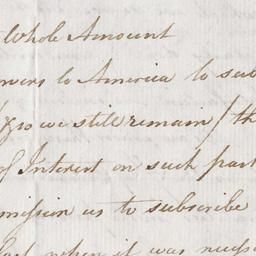 Whole Amount
to America to
we still remain / th
of Interest on such part
mission us to subscribe
when it was necess